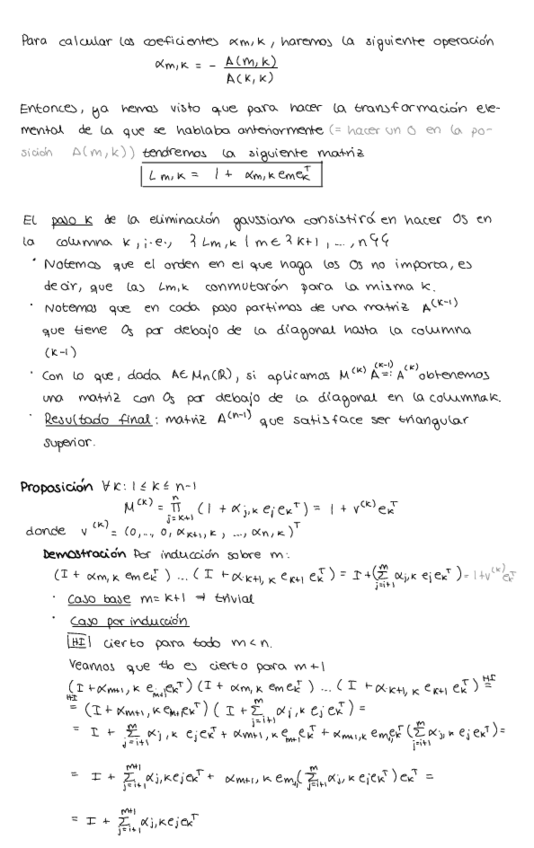 Para calcular los coeficientes αm,k, haremos la siguiente operación
αm,k = - A(m,k) / A(k,k)
Entonces, ya hemos visto que para hacer la transformación ele-
mental de la que se hablaba anteriormente (= hacer un 0 en la po-
sición A(m,k)) tendremos la siguiente matriz
Lm,k = I + αm,k emekᵀ
El paso k de la eliminación gaussiana consistirá en hacer 0s en
la columna k, i.e., {Lm,k | m ∈ {k+1, ..., n}}
· Notemos que el orden en el que haga los 0s no importa, es
decir, que las Lm,k conmutarán para la misma k.
· Notemos que en cada paso partimos de una matriz A⁽ᵏ⁻¹⁾
que tiene 0s por debajo de la diagonal hasta la columna
(k-1)
· Con lo que, dada A∈Mn(ℝ), si aplicamos M⁽ᵏ⁾A⁽ᵏ⁻¹⁾ =: A⁽ᵏ⁾ obtenemos
una matriz con 0s por debajo de la diagonal en la columna k.
· Resultado final: matriz A⁽ⁿ⁻¹⁾ que satisface ser triangular
superior.
Proposición ∀k: 1 ≤ k ≤ n-1
M⁽ᵏ⁾ = ∏ⁿⱼ₌ₖ₊₁ (I + αj,k ej ekᵀ) = I + v⁽ᵏ⁾ekᵀ
donde v⁽ᵏ⁾ = (0, ..., 0, αk+1,k, ..., αn,k)ᵀ
Demostración Por inducción sobre m:
(I + αm,k emekᵀ) ... (I + αk+1,k ek+1 ekᵀ) = I + (∑ᵐⱼ₌ᵢ₊₁ αj,k ejekᵀ) = I + v⁽ᵏ⁾ekᵀ
· Caso base m = k+1 → trivial
· Caso por inducción
HI cierto para todo m < n.
Veamos que tb es cierto para m+1
(I + αm+1,k em+1ekᵀ)(I + αm,k emekᵀ) ... (I + αk+1,k ek+1 ekᵀ) =ᴴᴵ
=ᴴᴵ (I + αm+1,k em+1ekᵀ)(I + ∑ᵐⱼ₌ᵢ₊₁ αj,k ejekᵀ) =
= I + ∑ᵐⱼ₌ᵢ₊₁ αj,k ejekᵀ + αm+1,k em+1ekᵀ + αm+1,k em+1ekᵀ(∑ᵐⱼ₌ᵢ₊₁ αj,k ejekᵀ) =
= I + ∑ᵐ⁺¹ⱼ₌ᵢ₊₁ αj,k ejekᵀ + αm+1,k em+1(∑ᵐⱼ₌ᵢ₊₁ αj,k ejekᵀ)ekᵀ =
= I + ∑ᵐ⁺¹ⱼ₌ᵢ₊₁ αj,k ejekᵀ